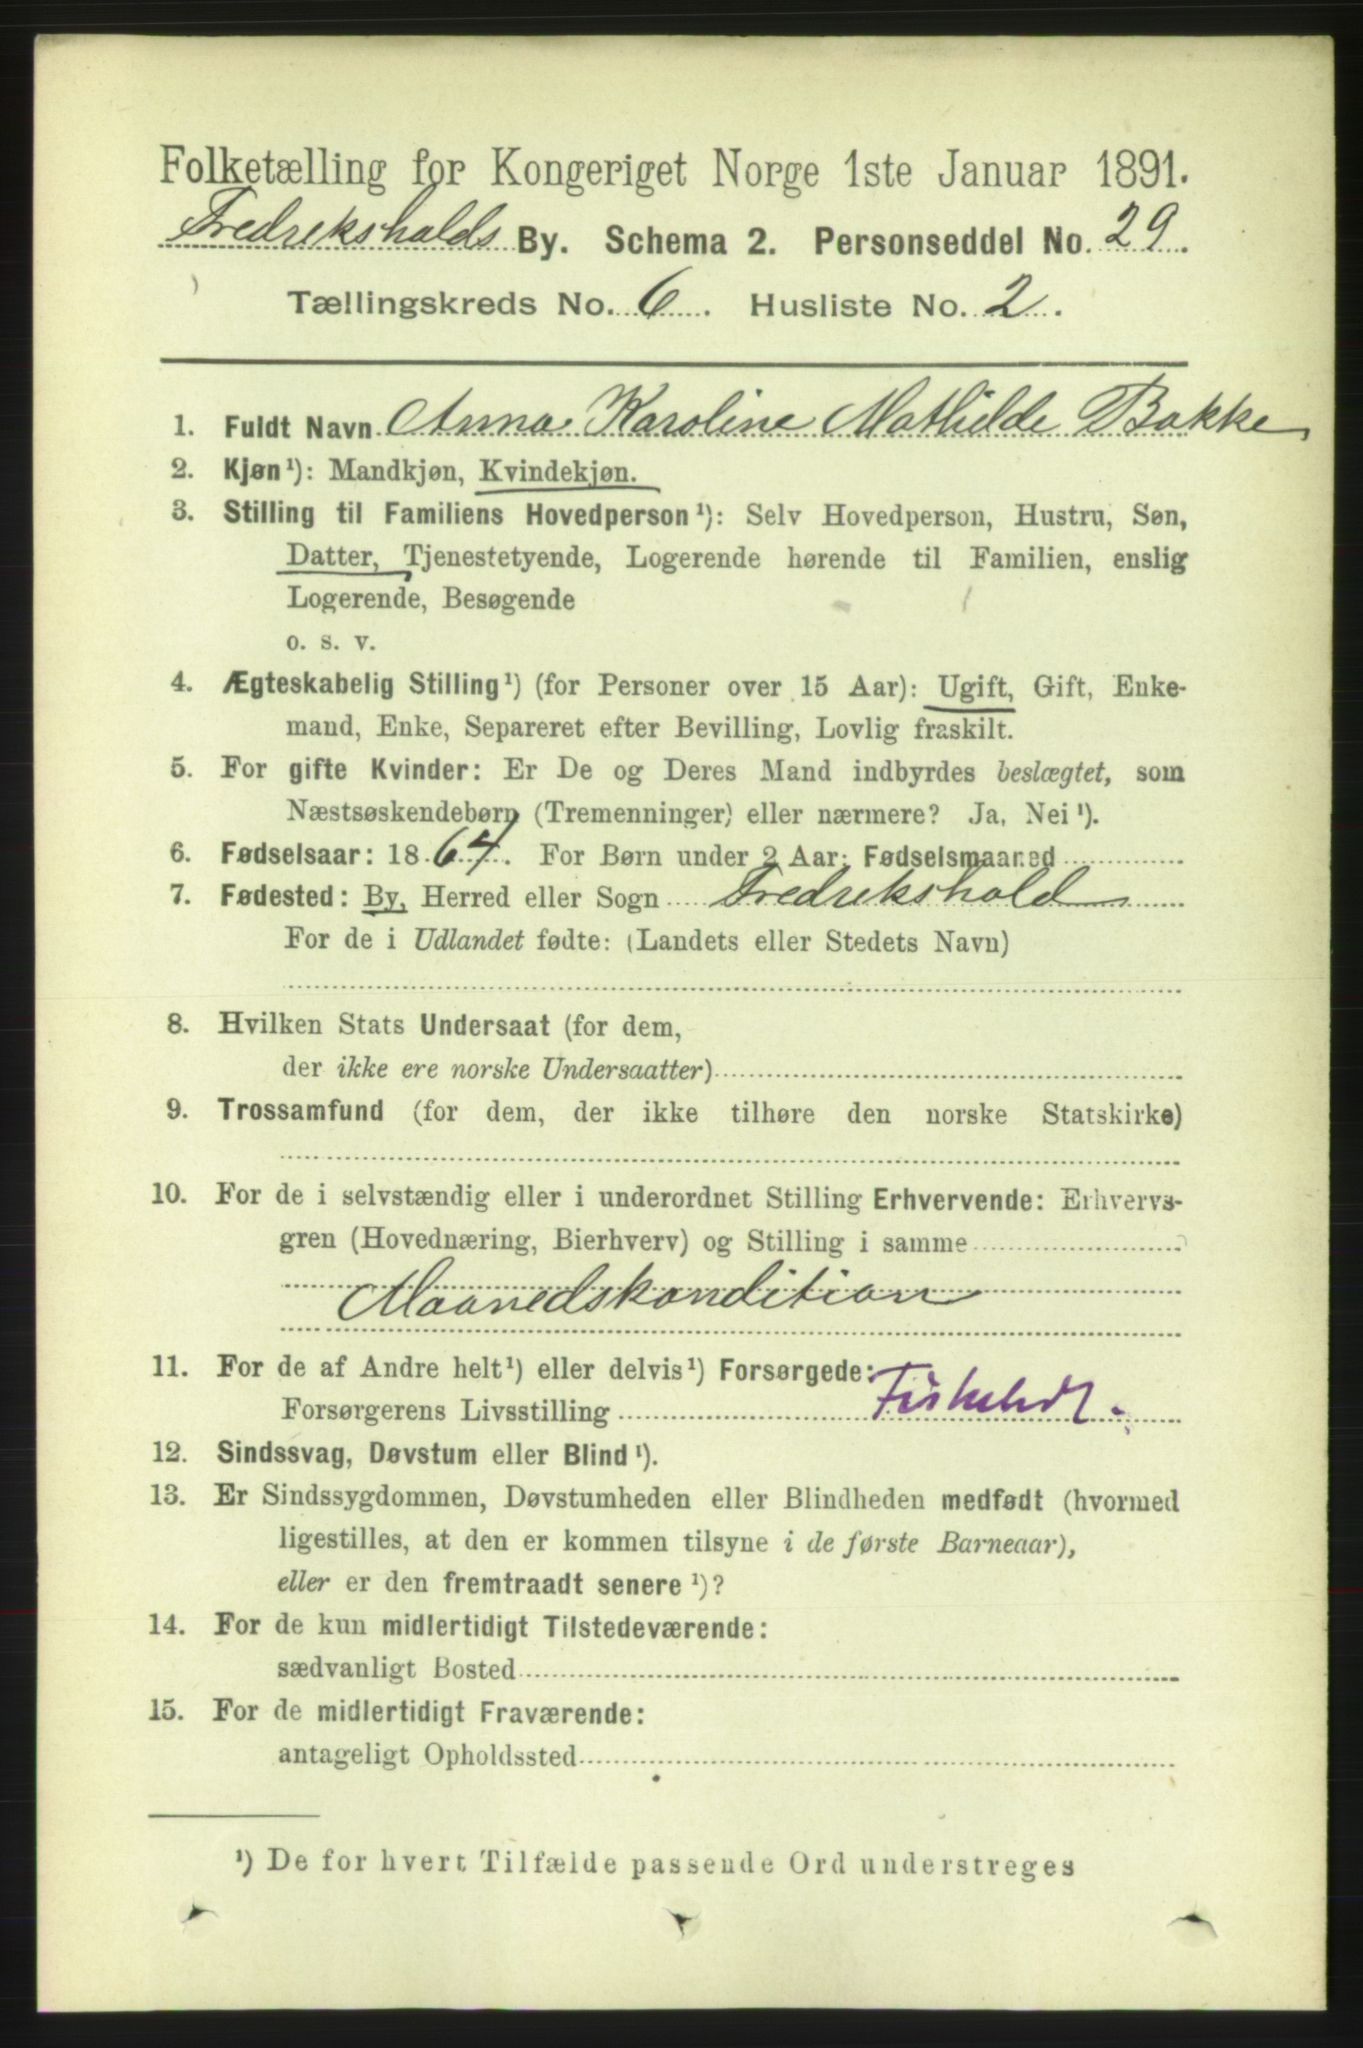 Folketælling for Kongeriget Norge 1ste Januar 1891.
Fredrikshalds By. Schema 2. Personseddel No. 29.
Tællingskreds No. 6. Husliste No. 2.
1. Fuldt Navn Anna Karoline Mathilde Bakke
2. Kjøn¹): Mandkjøn, Kvindekjøn.
3. Stilling til Familiens Hovedperson¹): Selv Hovedperson, Hustru, Søn,
Datter, Tjenestetyende, Logerende hørende til Familien, enslig
Logerende, Besøgende
o. s. v.
4. Ægteskabelig Stilling¹) (for Personer over 15 Aar): Ugift, Gift, Enke-
mand, Enke, Separeret efter Bevilling, Lovlig fraskilt.
5. For gifte Kvinder: Er De og Deres Mand indbyrdes beslægtet, som
Næstsøskendebørn (Tremenninger) eller nærmere? Ja, Nei¹).
6. Fødselsaar: 1864. For Børn under 2 Aar: Fødselsmaaned
7. Fødested: By, Herred eller Sogn Fredrikshald
For de i Udlandet fødte: (Landets eller Stedets Navn)
8. Hvilken Stats Undersaat (for dem,
der ikke ere norske Undersaatter)
9. Trossamfund (for dem, der ikke tilhøre den norske Statskirke)
10. For de i selvstændig eller i underordnet Stilling Erhvervende: Erhvervs-
gren (Hovednæring, Bierhverv) og Stilling i samme
Maanedskondition
11. For de af Andre helt¹) eller delvis¹) Forsørgede:
Forsørgerens Livsstilling
12. Sindssvag, Døvstum eller Blind¹).
13. Er Sindssygdommen, Døvstumheden eller Blindheden medfødt (hvormed
ligestilles, at den er kommen tilsyne i de første Barneaar),
eller er den fremtraadt senere¹)?
14. For de kun midlertidigt Tilstedeværende:
sædvanligt Bosted
15. For de midlertidigt Fraværende:
antageligt Opholdssted
¹) De for hvert Tilfælde passende Ord understreges